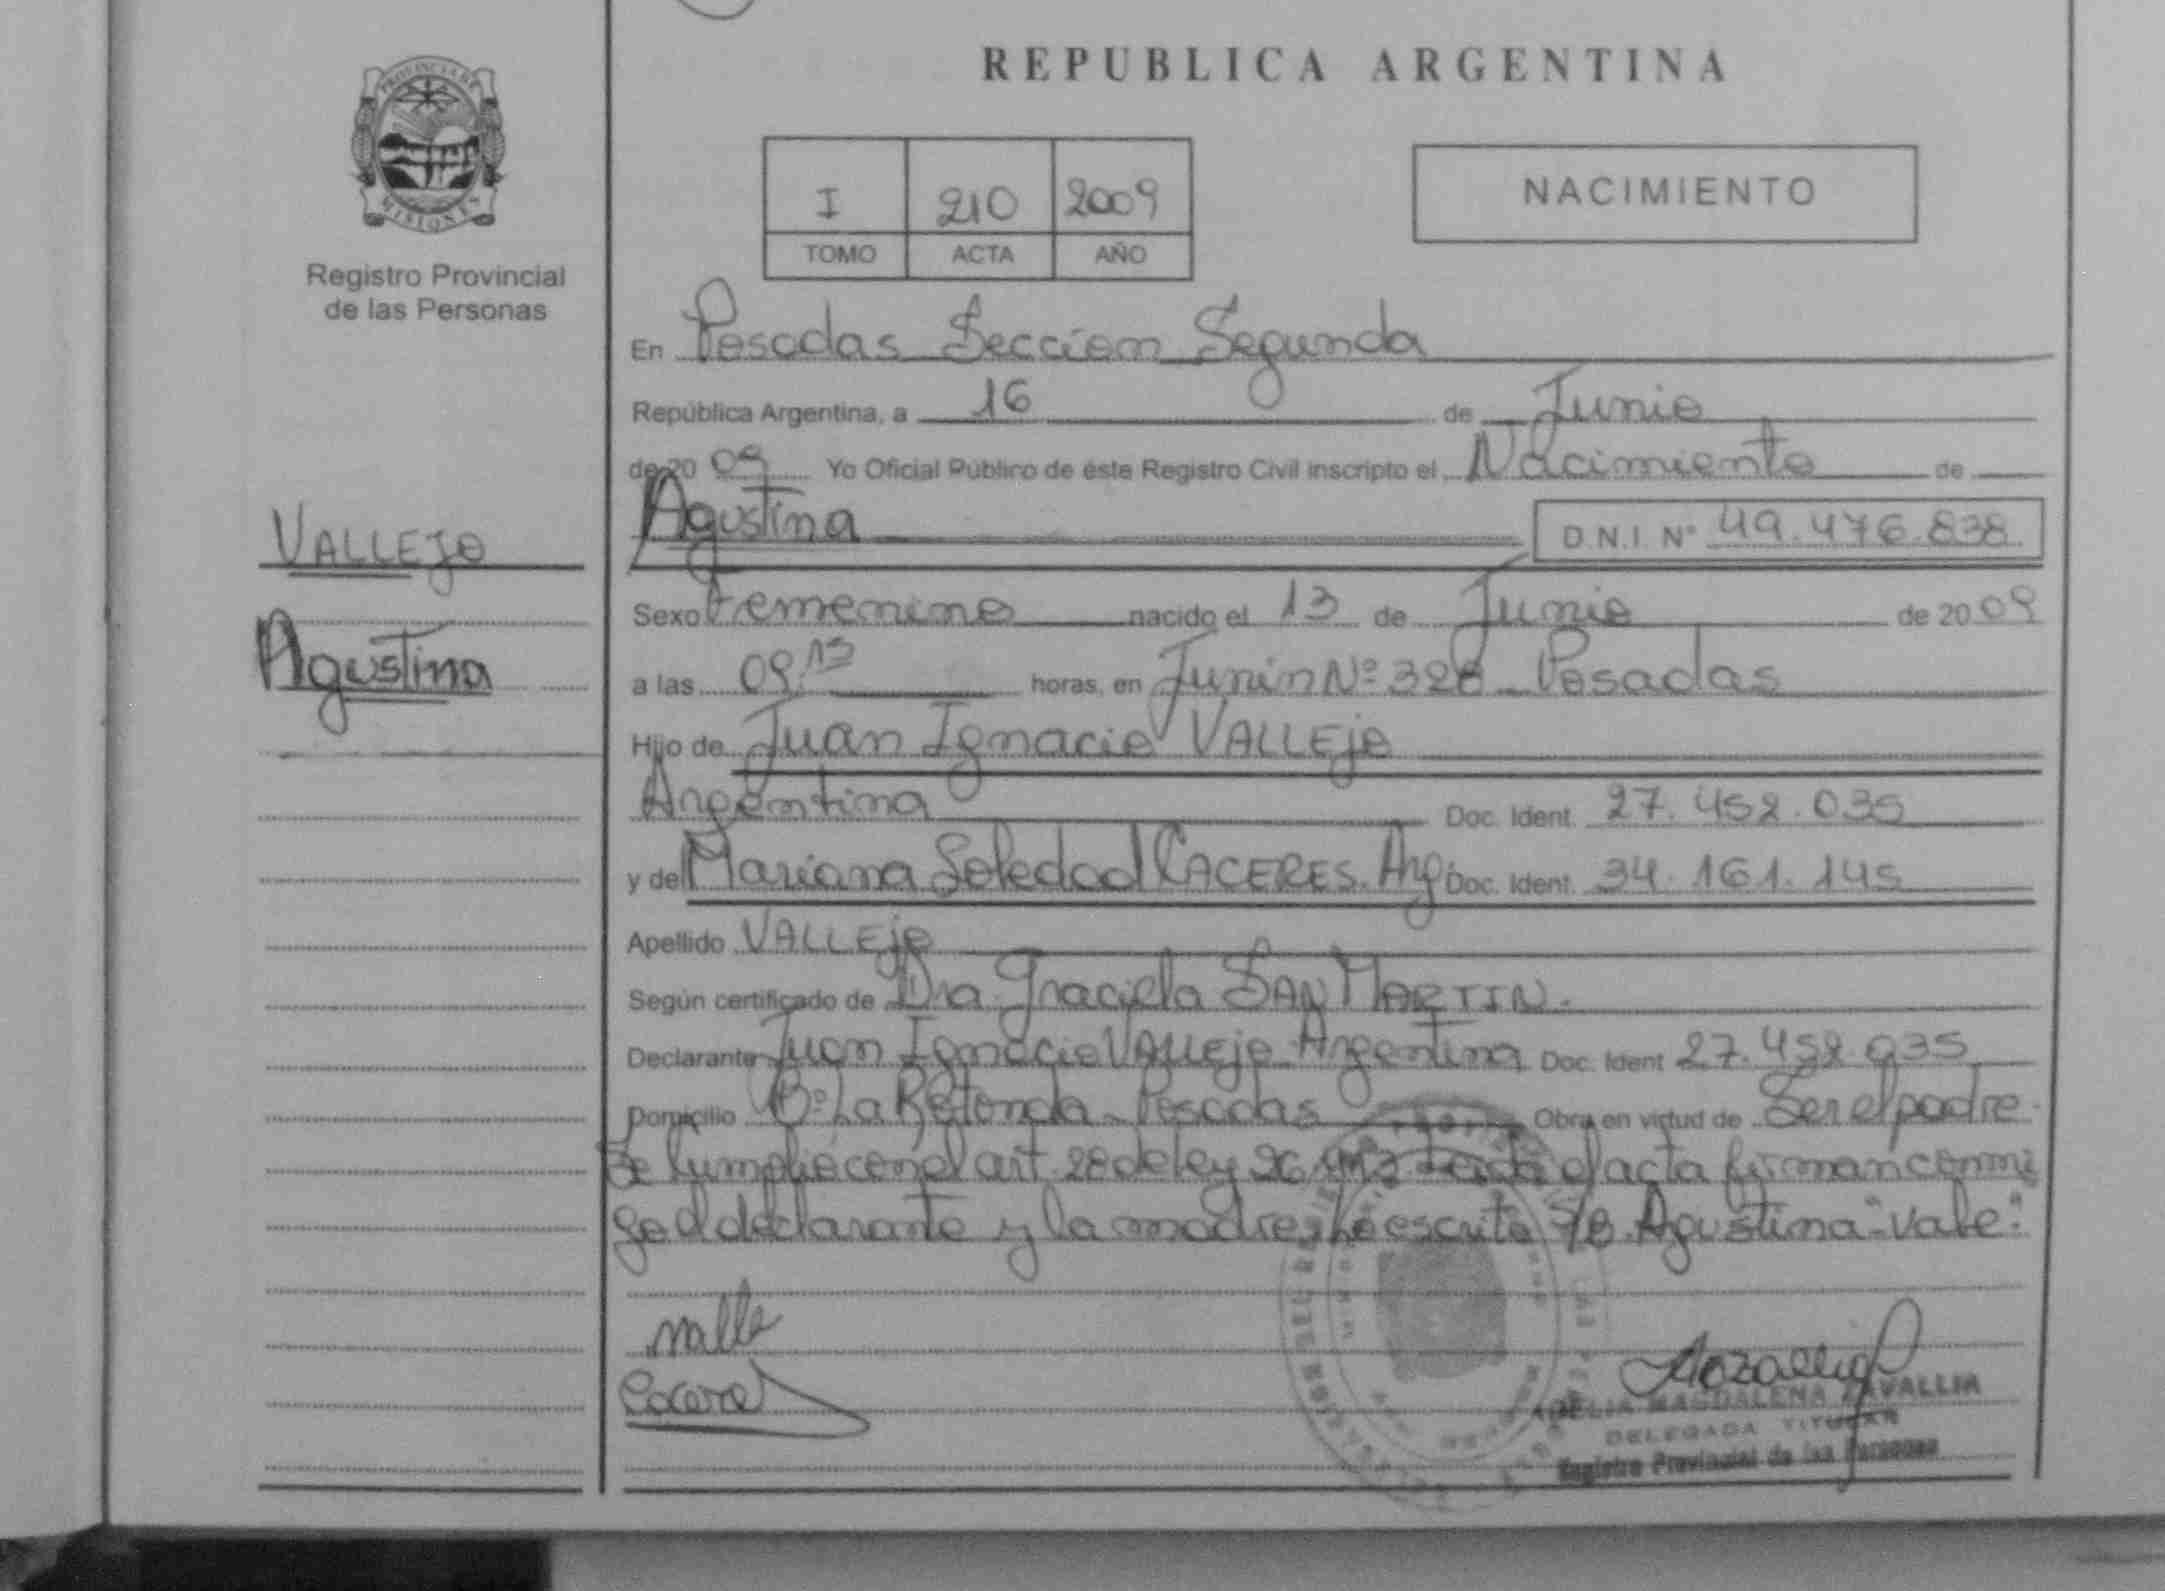 REPUBLICA ARGENTINA
PROVINCIA DE
MISIONES
Registro Provincial
de las Personas
I 210 2009
TOMO ACTA AÑO
NACIMIENTO
En Posadas Seccion Segunda
República Argentina, a 16 de Junio
de 20 09 Yo Oficial Público de éste Registro Civil inscripto el Nacimiento de
VALLEJO
Agustina
Agustina D.N.I. Nº 49.476.838
Sexo Femenino nacido el 13 de Junio de 20 09
a las 09:15 horas, en Junin Nº 328 Posadas
Hijo de Juan Ignacio VALLEJo
Argentina Doc. Ident. 27.452.035
y de Mariana Soledad CACERES. Arg. Doc. Ident. 34.161.145
Apellido VALLEJo
Según certificado de Dra. Graciela SAN MARTIN.
Declarante Juan Ignacio VALLEJO Argentina Doc. Ident 27.452.035
Domicilio Bº La Rotonda Posadas Obra en virtud de Ser el padre.
Se Cumplio con el art. 28 de ley 26 Leida el acta firman conmi
go el declarante y la madre, he escrito S/B. Agustina "Vale".
Valle
Caceres
ADELIA MAGDALENA ZAVALLIA
DELEGADA TITULAR
Registro Provincial de las Personas